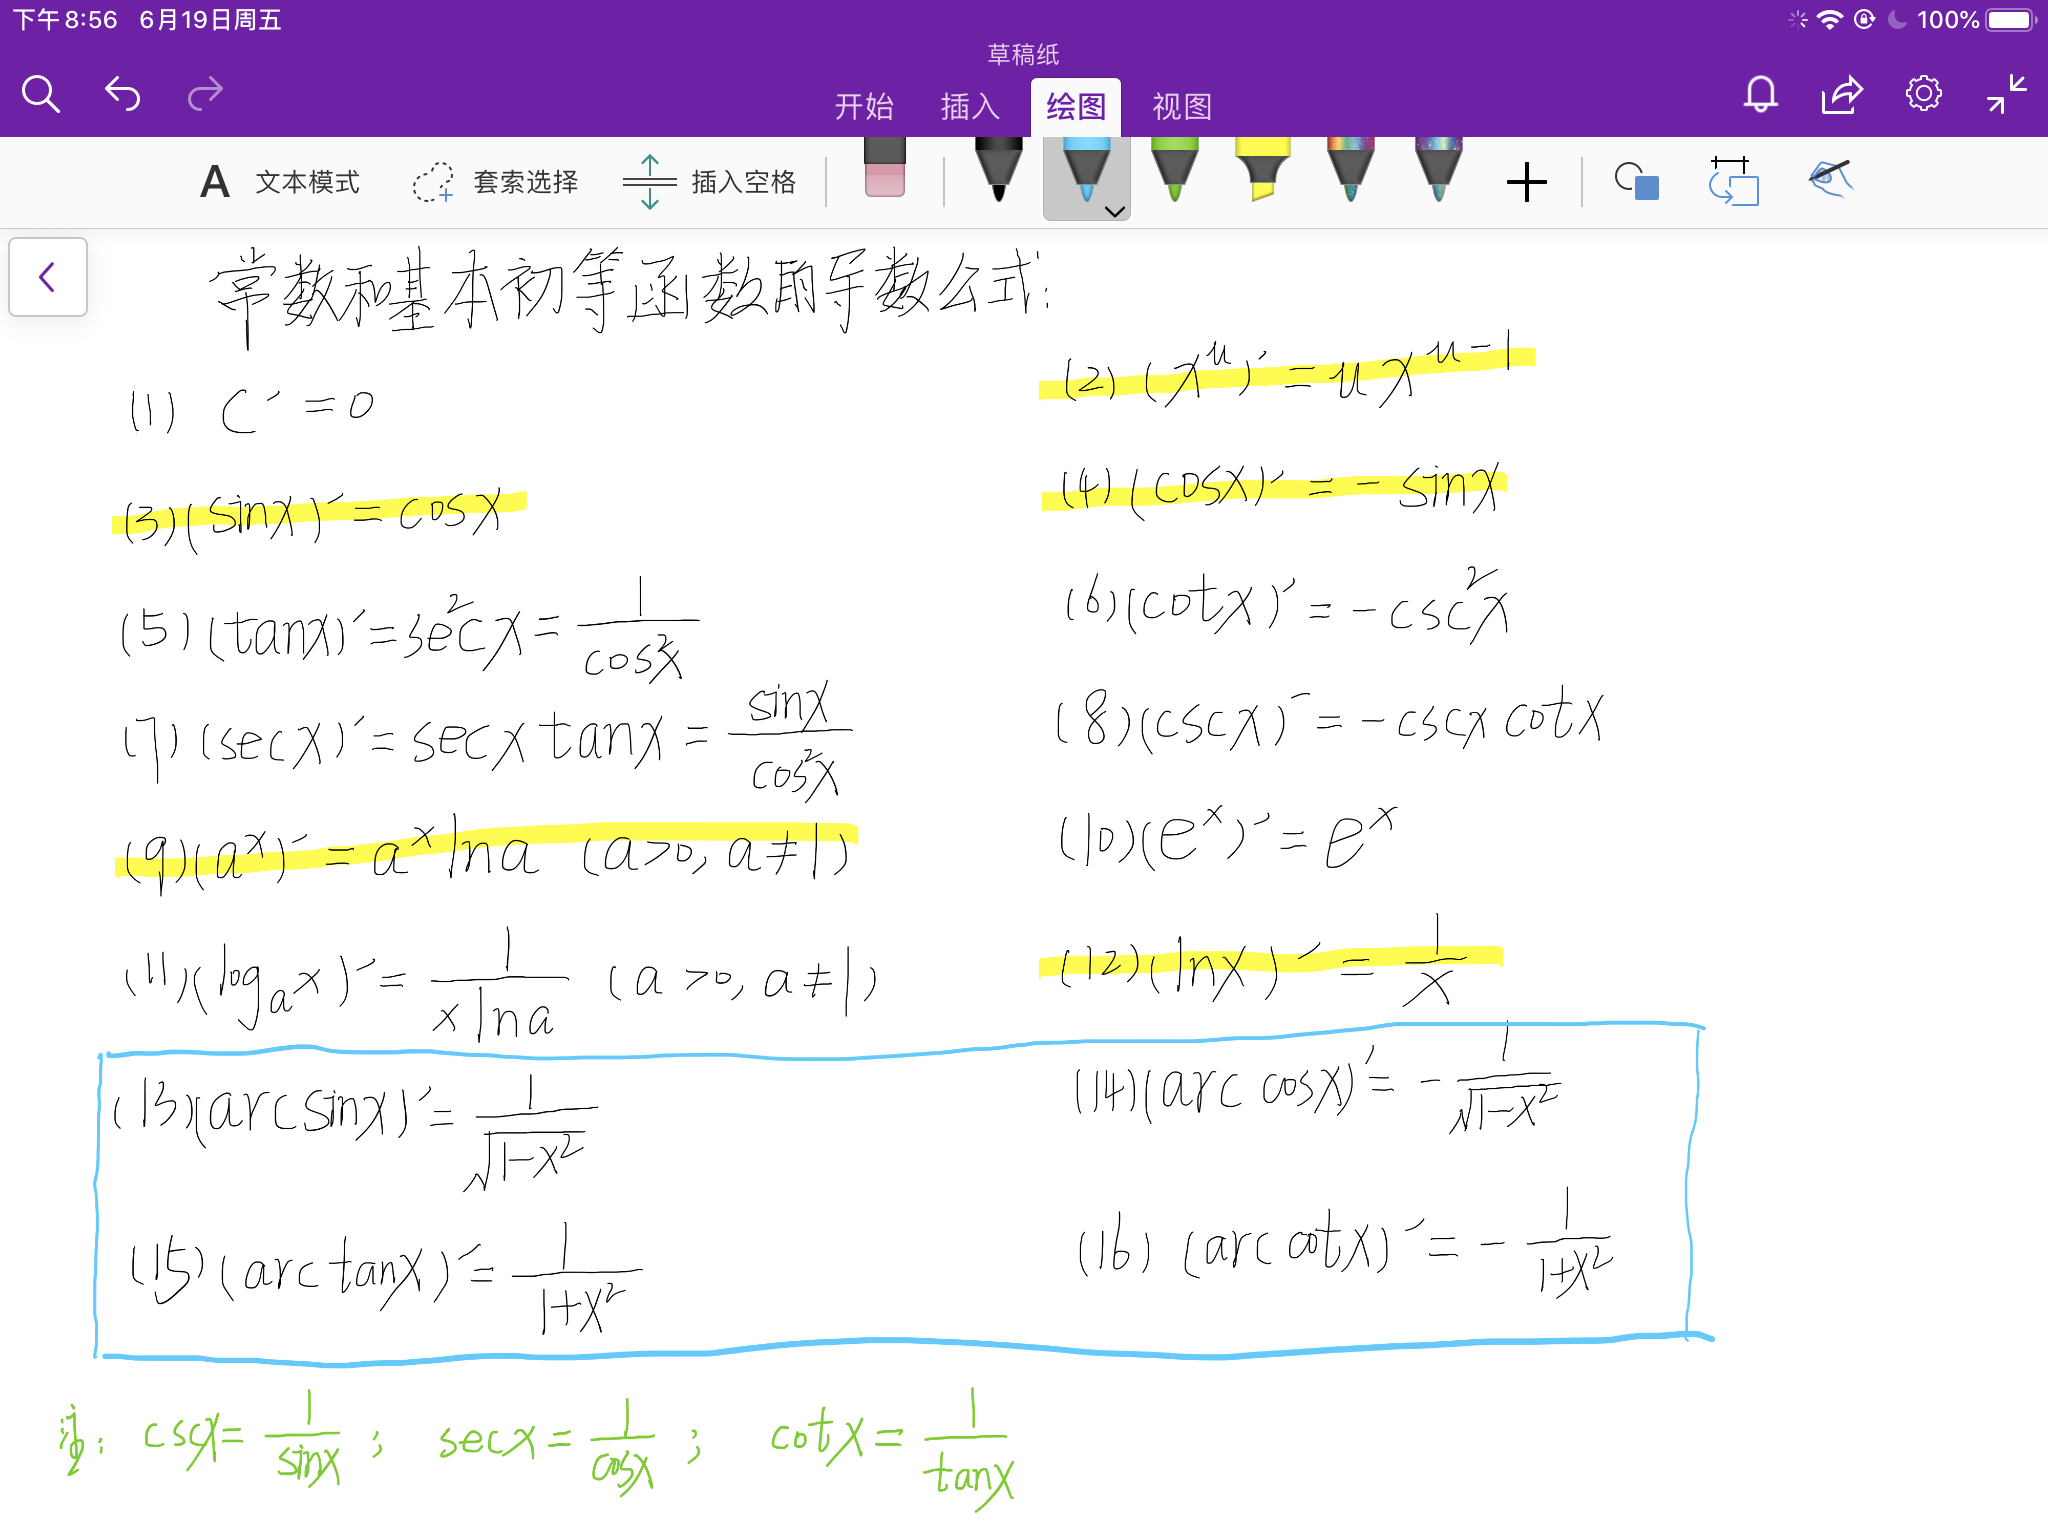 下午8:56 6月19日周五
100%
草稿纸
开始 插入 绘图 视图
A 文本模式 套索选择 插入空格
常数和基本初等函数的导数公式:
(1) C′=0
(2) (x^u)′=ux^(u-1)
(3)(sinx)′=cosx
(4)(cosx)′=-sinx
(5)(tanx)′=sec²x=1/cos²x
(6)(cotx)′=-csc²x
(7)(secx)′=secxtanx=sinx/cos²x
(8)(cscx)′=-cscxcotx
(9)(a^x)′=a^x lna (a>0, a≠1)
(10)(e^x)′=e^x
(11)(log_a x)′=1/(xlna) (a>0, a≠1)
(12)(lnx)′=1/x
(13)(arcsinx)′=1/√(1-x²)
(14)(arccosx)′=-1/√(1-x²)
(15)(arctanx)′=1/(1+x²)
(16)(arccotx)′=-1/(1+x²)
注: cscx=1/sinx; secx=1/cosx; cotx=1/tanx